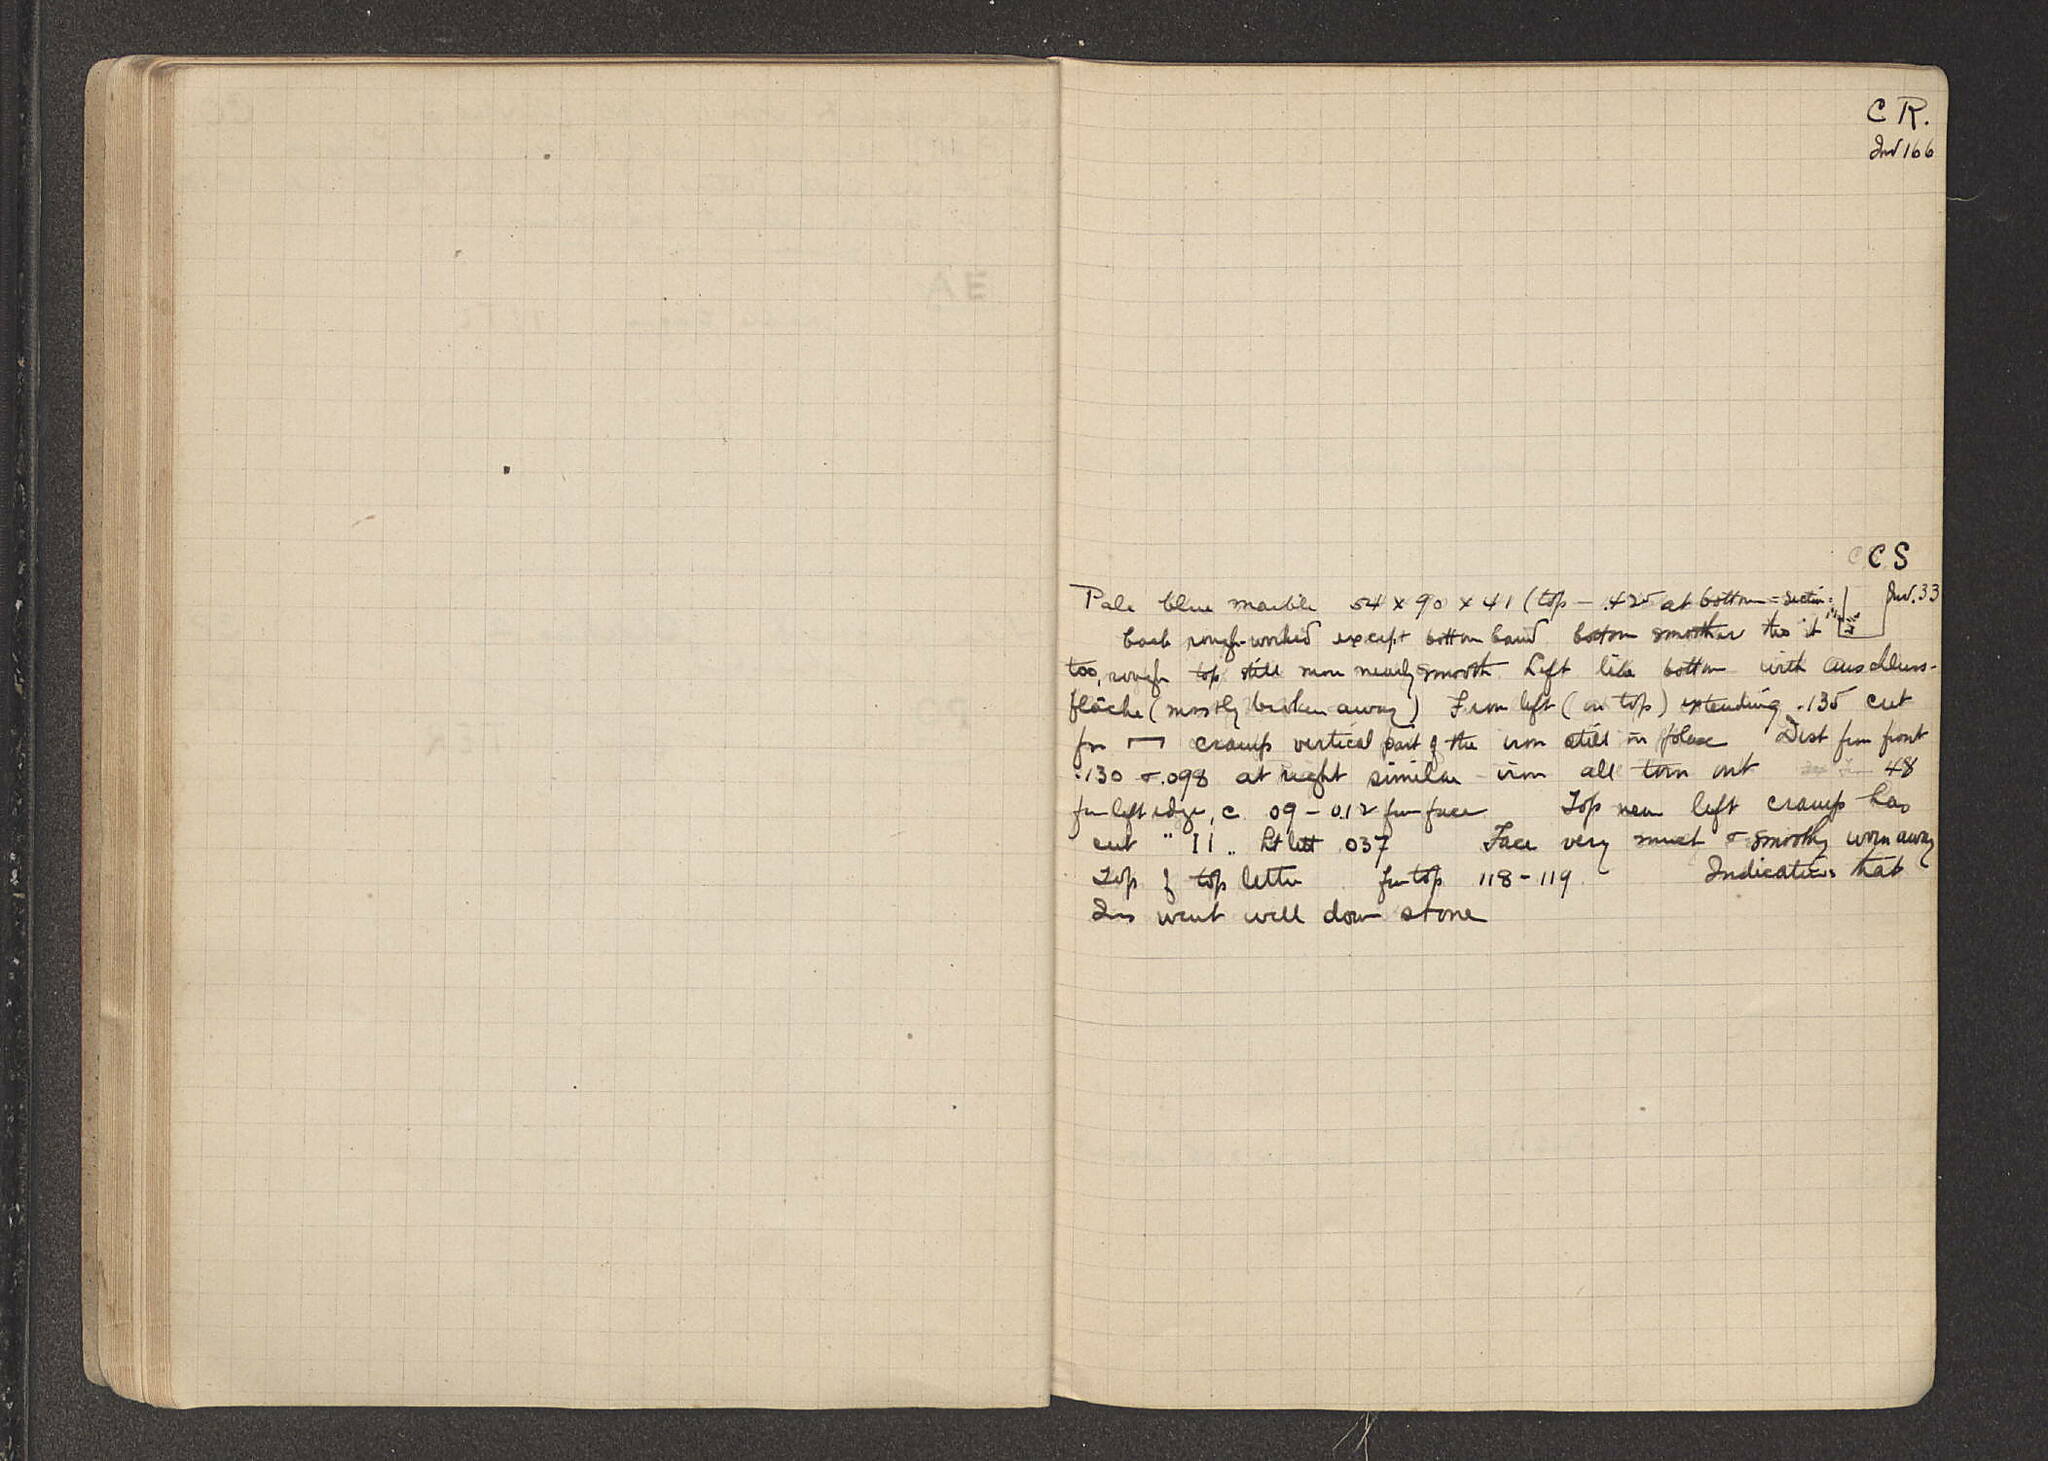 C R.
Inv 166
C C S
Pale blue marble .54 x 90 x 41 (top - .425 at bottom = section: Inv. 33
back rough-worked except bottom band bottom smoother tho it
too, rough top still more nearly smooth Left like bottom with Anschluss-
fläche (mostly broken away) From left (on top) extending .135 cut
for cramp vertical part of the iron still in place Dist from front
.130 & .098 at right similar - iron all torn out 48
from left edge, c. 09 - 0.12 from face Top near left cramp has
cut " II " Ht lett 037 Face very much & smoothly worn away
Top of top letter from top 118 - 119 Indications that
Ins went well down stone